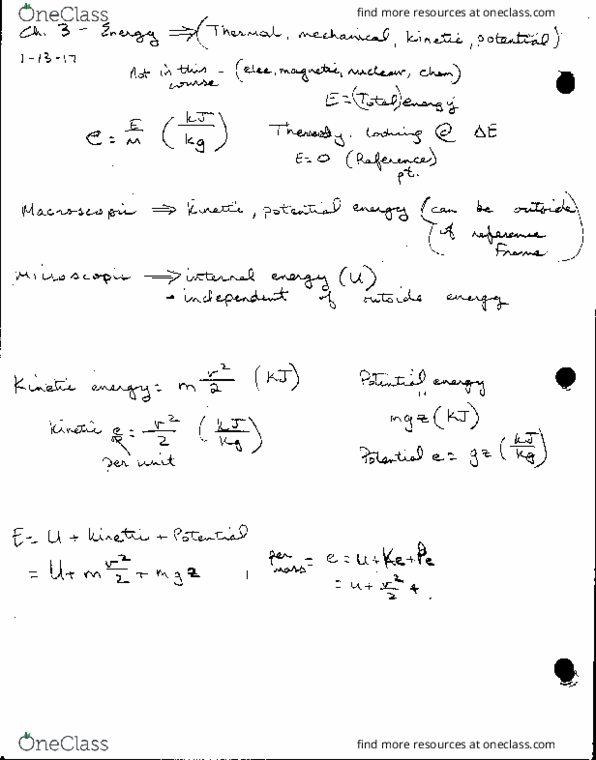 OneClass find more resources at oneclass.com
Ch. 3 - Energy ⇒ (Thermal, mechanical, kinetic, potential)
1-13-17
Not in this course - (elec, magnetic, nuclear, chem)
E = (Total) energy
e = E/m (kJ/kg) Thermody. looking @ ΔE
E = 0 (Reference) pt.
Macroscopic ⇒ kinetic, potential energy (can be outside
of reference
Frame)
Microscopic ⇒ internal energy (U)
- independent of outside energy
Kinetic energy = m v²/2 (kJ) Potential energy
"
mgz (kJ)
Kinetic e = v²/2 (kJ/kg)
per unit
Potential e = gz (kJ/kg)
E = U + kinetic + Potential
= U + m v²/2 + mgz , per mass = e = u + Ke + Pe
= u + v²/2 +
OneClass find more resources at oneclass.com